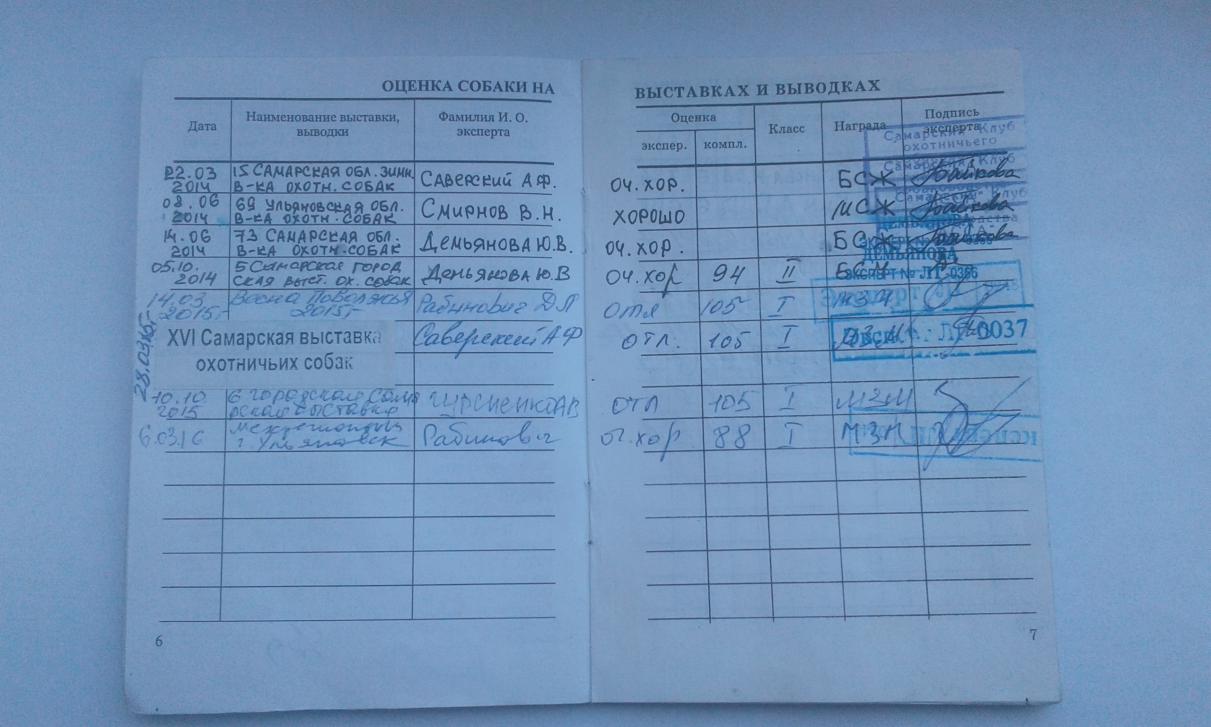 ОЦЕНКА СОБАКИ НА
Дата
Наименование выставки,
выводки
Фамилия И. О.
эксперта
22.03
2014
15 САМАРСКАЯ ОБЛ. ЗИМН.
В-КА ОХОТН. СОБАК
САВЕРСКИЙ А.Ф.
08.06
2014
69 УЛЬЯНОВСКАЯ ОБЛ.
В-КА ОХОТН. СОБАК
СМИРНОВ В.Н.
14.06
2014
73 САМАРСКАЯ ОБЛ.
В-КА ОХОТН. СОБАК
ДЕМЬЯНОВА Ю.В.
05.10.
2014
ГОРОД
СКАЯ ВЫСТ. ОХ. СОБАК
ДЕМЬЯНОВА Ю.В
14.03
2015г
Весна Поволжья
2015г
Рабинович Д.Л
28.03.15г.
XVI Самарская выставка
охотничьих собак
Саверский А Ф
10.10.
2015
6 городская Сама
рская выставка
6.03.16
г. Ульяновск
6
ВЫСТАВКАХ И ВЫВОДКАХ
Оценка
экспер.
компл.
Класс
Награда
Подпись
эксперта
Самарский Клуб
охотничьего
ОЧ. ХОР.
БСЖ
ХОРОШО
МСЖ
ОЧ. ХОР.
БСЖ
ДЕМЬЯНОВА
ОЧ. ХОР
94
II
ЭКСПЕРТ № ЛГ-0366
отл
105
I
Эксперт
ОТЛ.
105
I
0037
ОТЛ
105
I
М2М
оч. хор
88
I
М3М
7